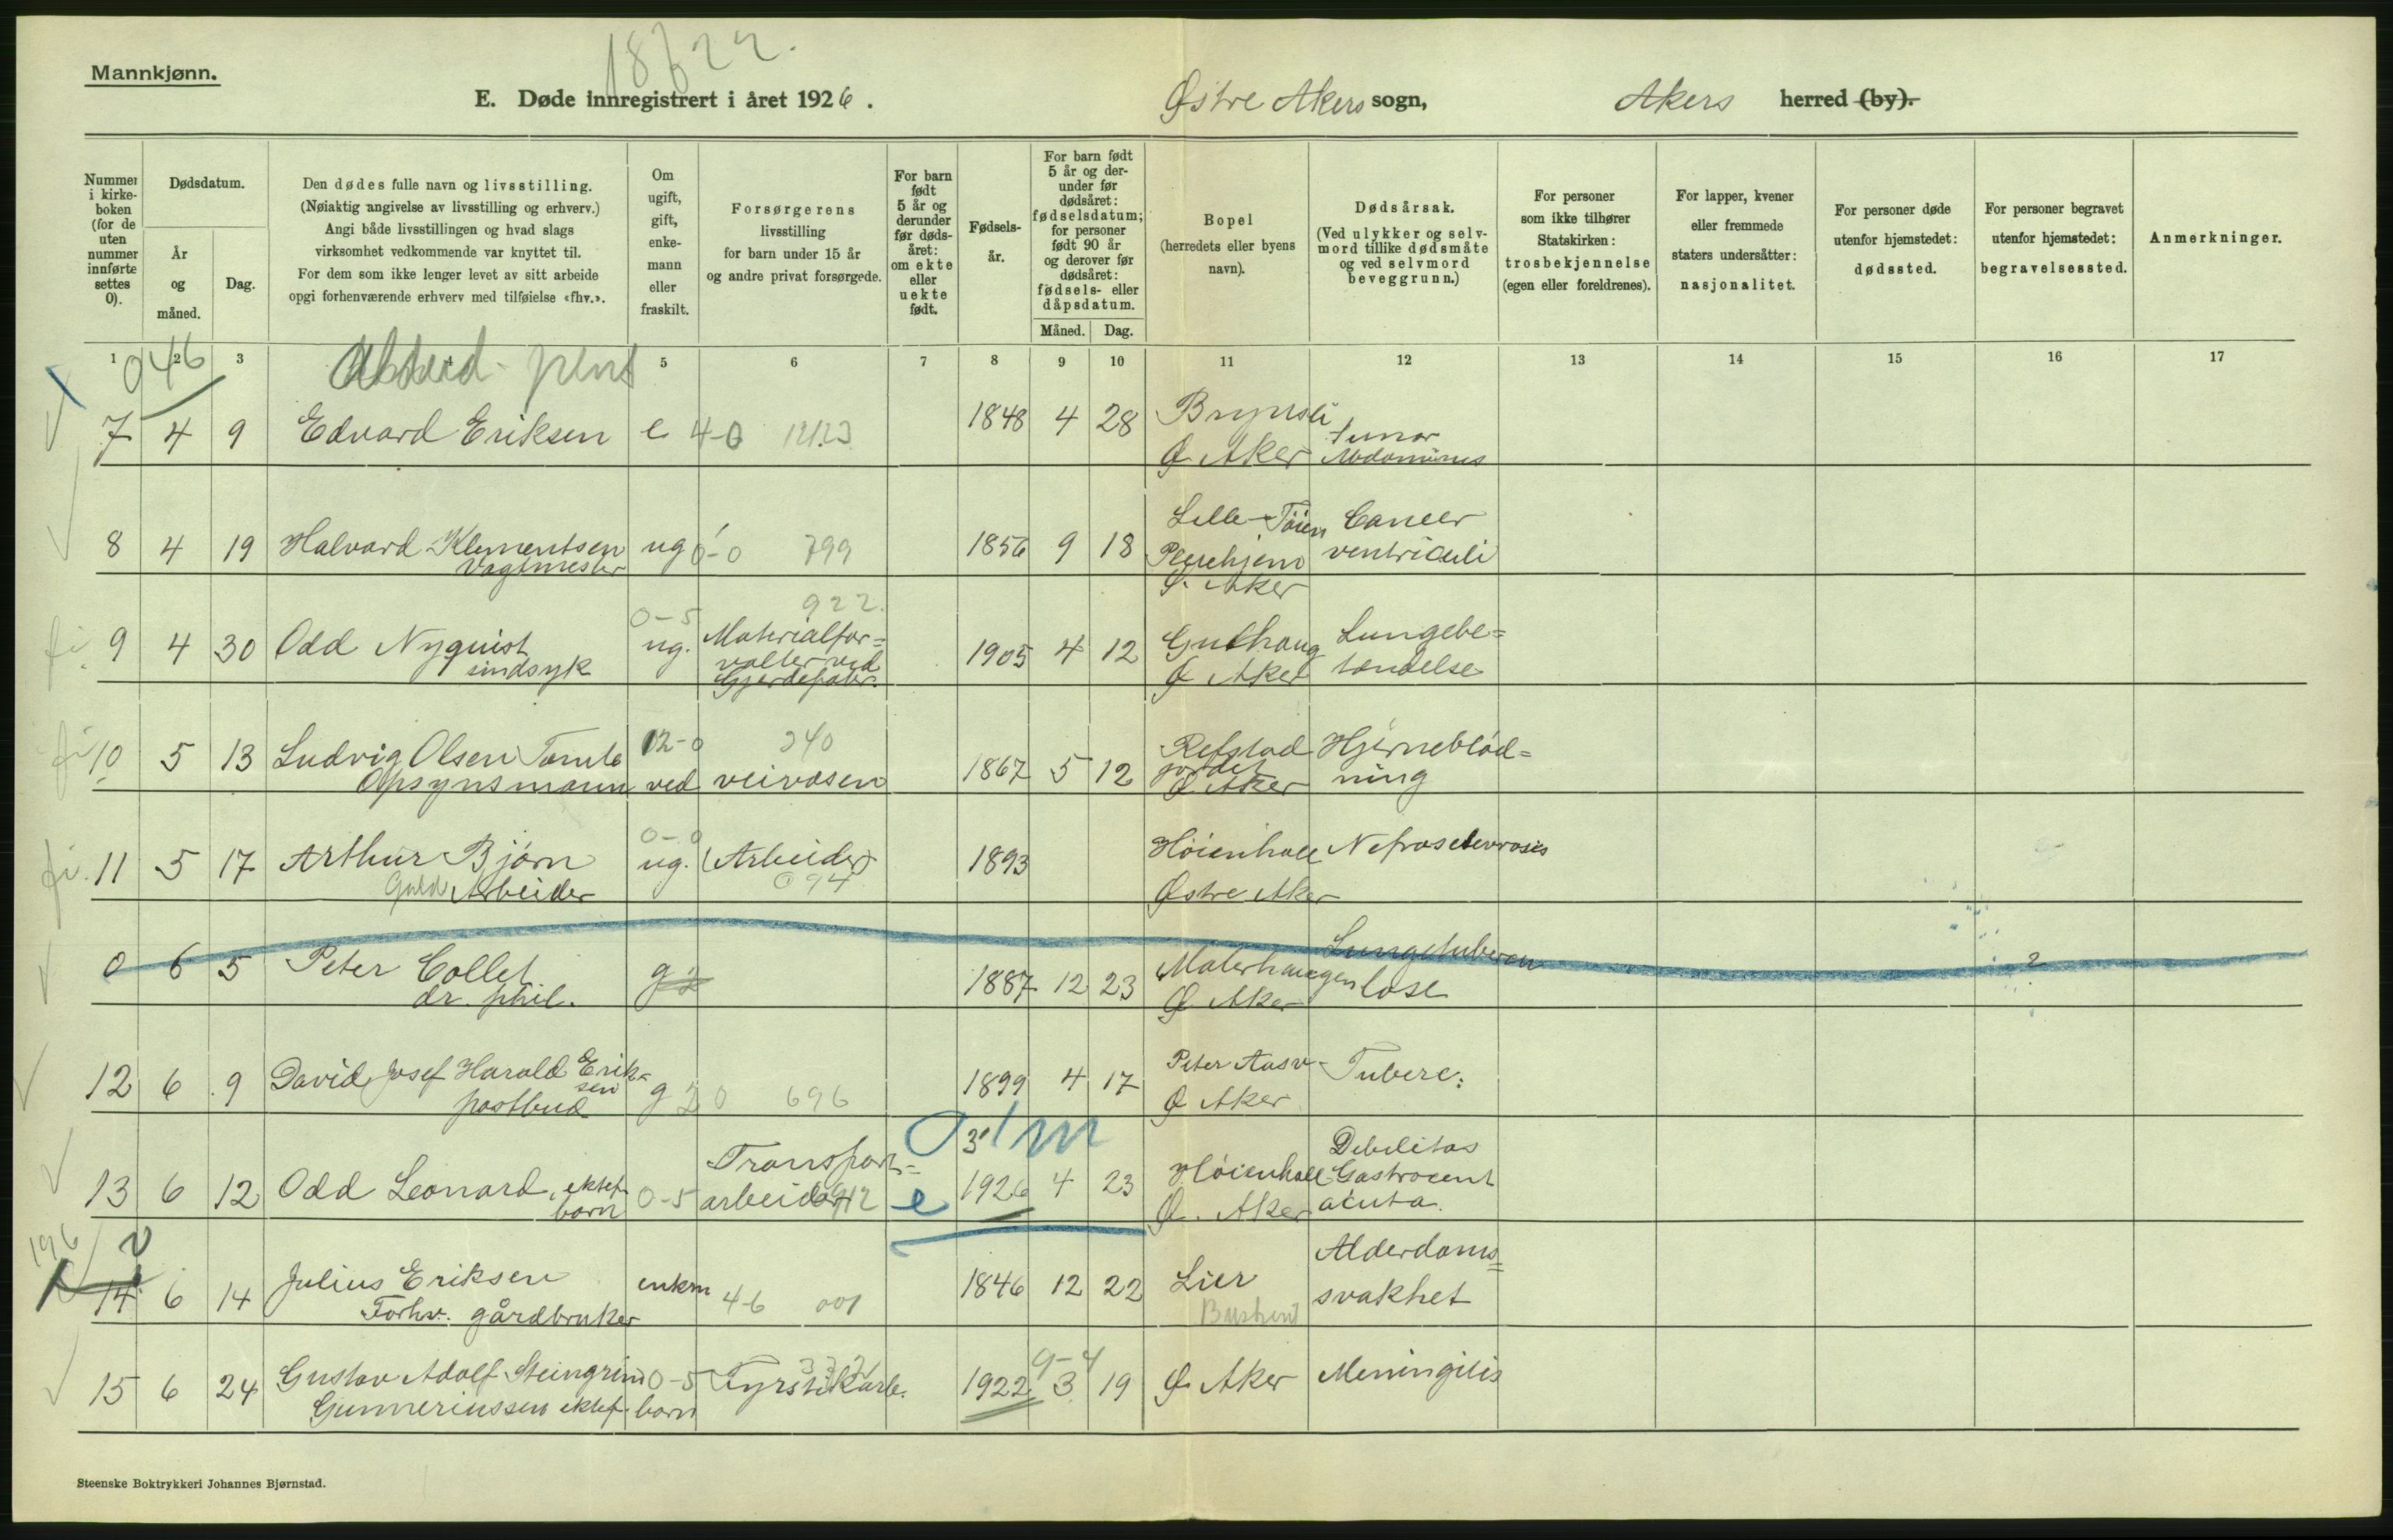 Mannkjønn.
18622.
E. Døde innregistrert i året 1926. Østre Akers sogn, Akers herred (by).
Nummer i kirkeboken (for de uten nummer innførte settes 0).
Dødsdatum.
År og måned.
Dag.
Den dødes fulle navn og livsstilling.
(Nøiaktig angivelse av livsstilling og erhverv.)
Angi både livsstillingen og hvad slags
virksomhet vedkommende var knyttet til.
For dem som ikke lenger levet av sitt arbeide
opgi forhenværende erhverv med tilføielse «fhv.».
Om ugift, gift, enkemann eller fraskilt.
Forsørgerens
livsstilling
for barn under 15 år
og andre privat forsørgede.
For barn født 5 år og derunder før dødsåret: om ekte eller uekte født.
Fødselsår.
For barn født 5 år og derunder før dødsåret: fødselsdatum; for personer født 90 år og derover før dødsåret: fødsels- eller dåpsdatum.
Måned. Dag.
Bopel
(herredets eller byens
navn).
Dødsårsak.
(Ved ulykker og selvmord tillike dødsmåte og ved selvmord beveggrunn.)
For personer
som ikke tilhører
Statskirken:
trosbekjennelse
(egen eller foreldrenes).
For lapper, kvener
eller fremmede
staters undersåtter:
nasjonalitet.
For personer døde
utenfor hjemstedet:
dødssted.
For personer begravet
utenfor hjemstedet:
begravelsessted.
Anmerkninger.
1 2 3 5 6 7 8 9 10 11 12 13 14 15 16 17
046
7 4 9 Edvard Eriksen e 4-0 1848 4 28 Brynsli
Ø. Aker tumor
Abdominis
8 4 19 Halvard Klementsen
Vagtmester ug 0-0 799 1856 9 18 Lille-Töien
Pleiehjem
Ø. Aker Cancer
ventriculi
9 4 30 Odd Nyquist
sindsyk 0-5
ug. 922.
Materialfor=
valter ved
Gjerdefabr. 1905 4 12 Guthaug
Ø Aker Lungebe=
tændelse
10 5 13 Ludvig Olsen Tomte 12-0 340
Opsynsmann ved veivæsen 1867 5 12 Refstad
jordet
Ø. Aker Hjerneblöd=
ning
11 5 17 Arthur Björn
Guld Arbeider 0-0
ug. (Arbeider)
094 1893 Höienhall
Østre Aker Nefrosclerosis
0 6 5 Peter Collet
dr. phil. g 1887 12 23 Malerhaugen
Ø Aker Lungetuberku
lose 2
12 6 9 David Josef Harald Erik-
sen
postbud g 50 696 1899 4 17 Peter Aasv.
Ø Aker Tuberc:
13 6 12 Odd Leonard, ektef.
barn 0-5 Transport=
arbeider 912 e 0 1m 3
1926 4 23 Höienhall
Ø. Aker Debilitas
Gastroent
acuta.
196
14 6 14 Julius Eriksen
Forhv. gårdbruker enkm 4-6 001 1846 12 22 Lier
Buskerud Alderdoms=
svakhet
15 6 24 Gustav Adolf Steingrim
Gunneriussen ektef. barn 0-5 Fyrstikarb. 1922 3 19 9-4 Ø. Aker Meningitis
Steenske Boktrykkeri Johannes Bjørnstad.